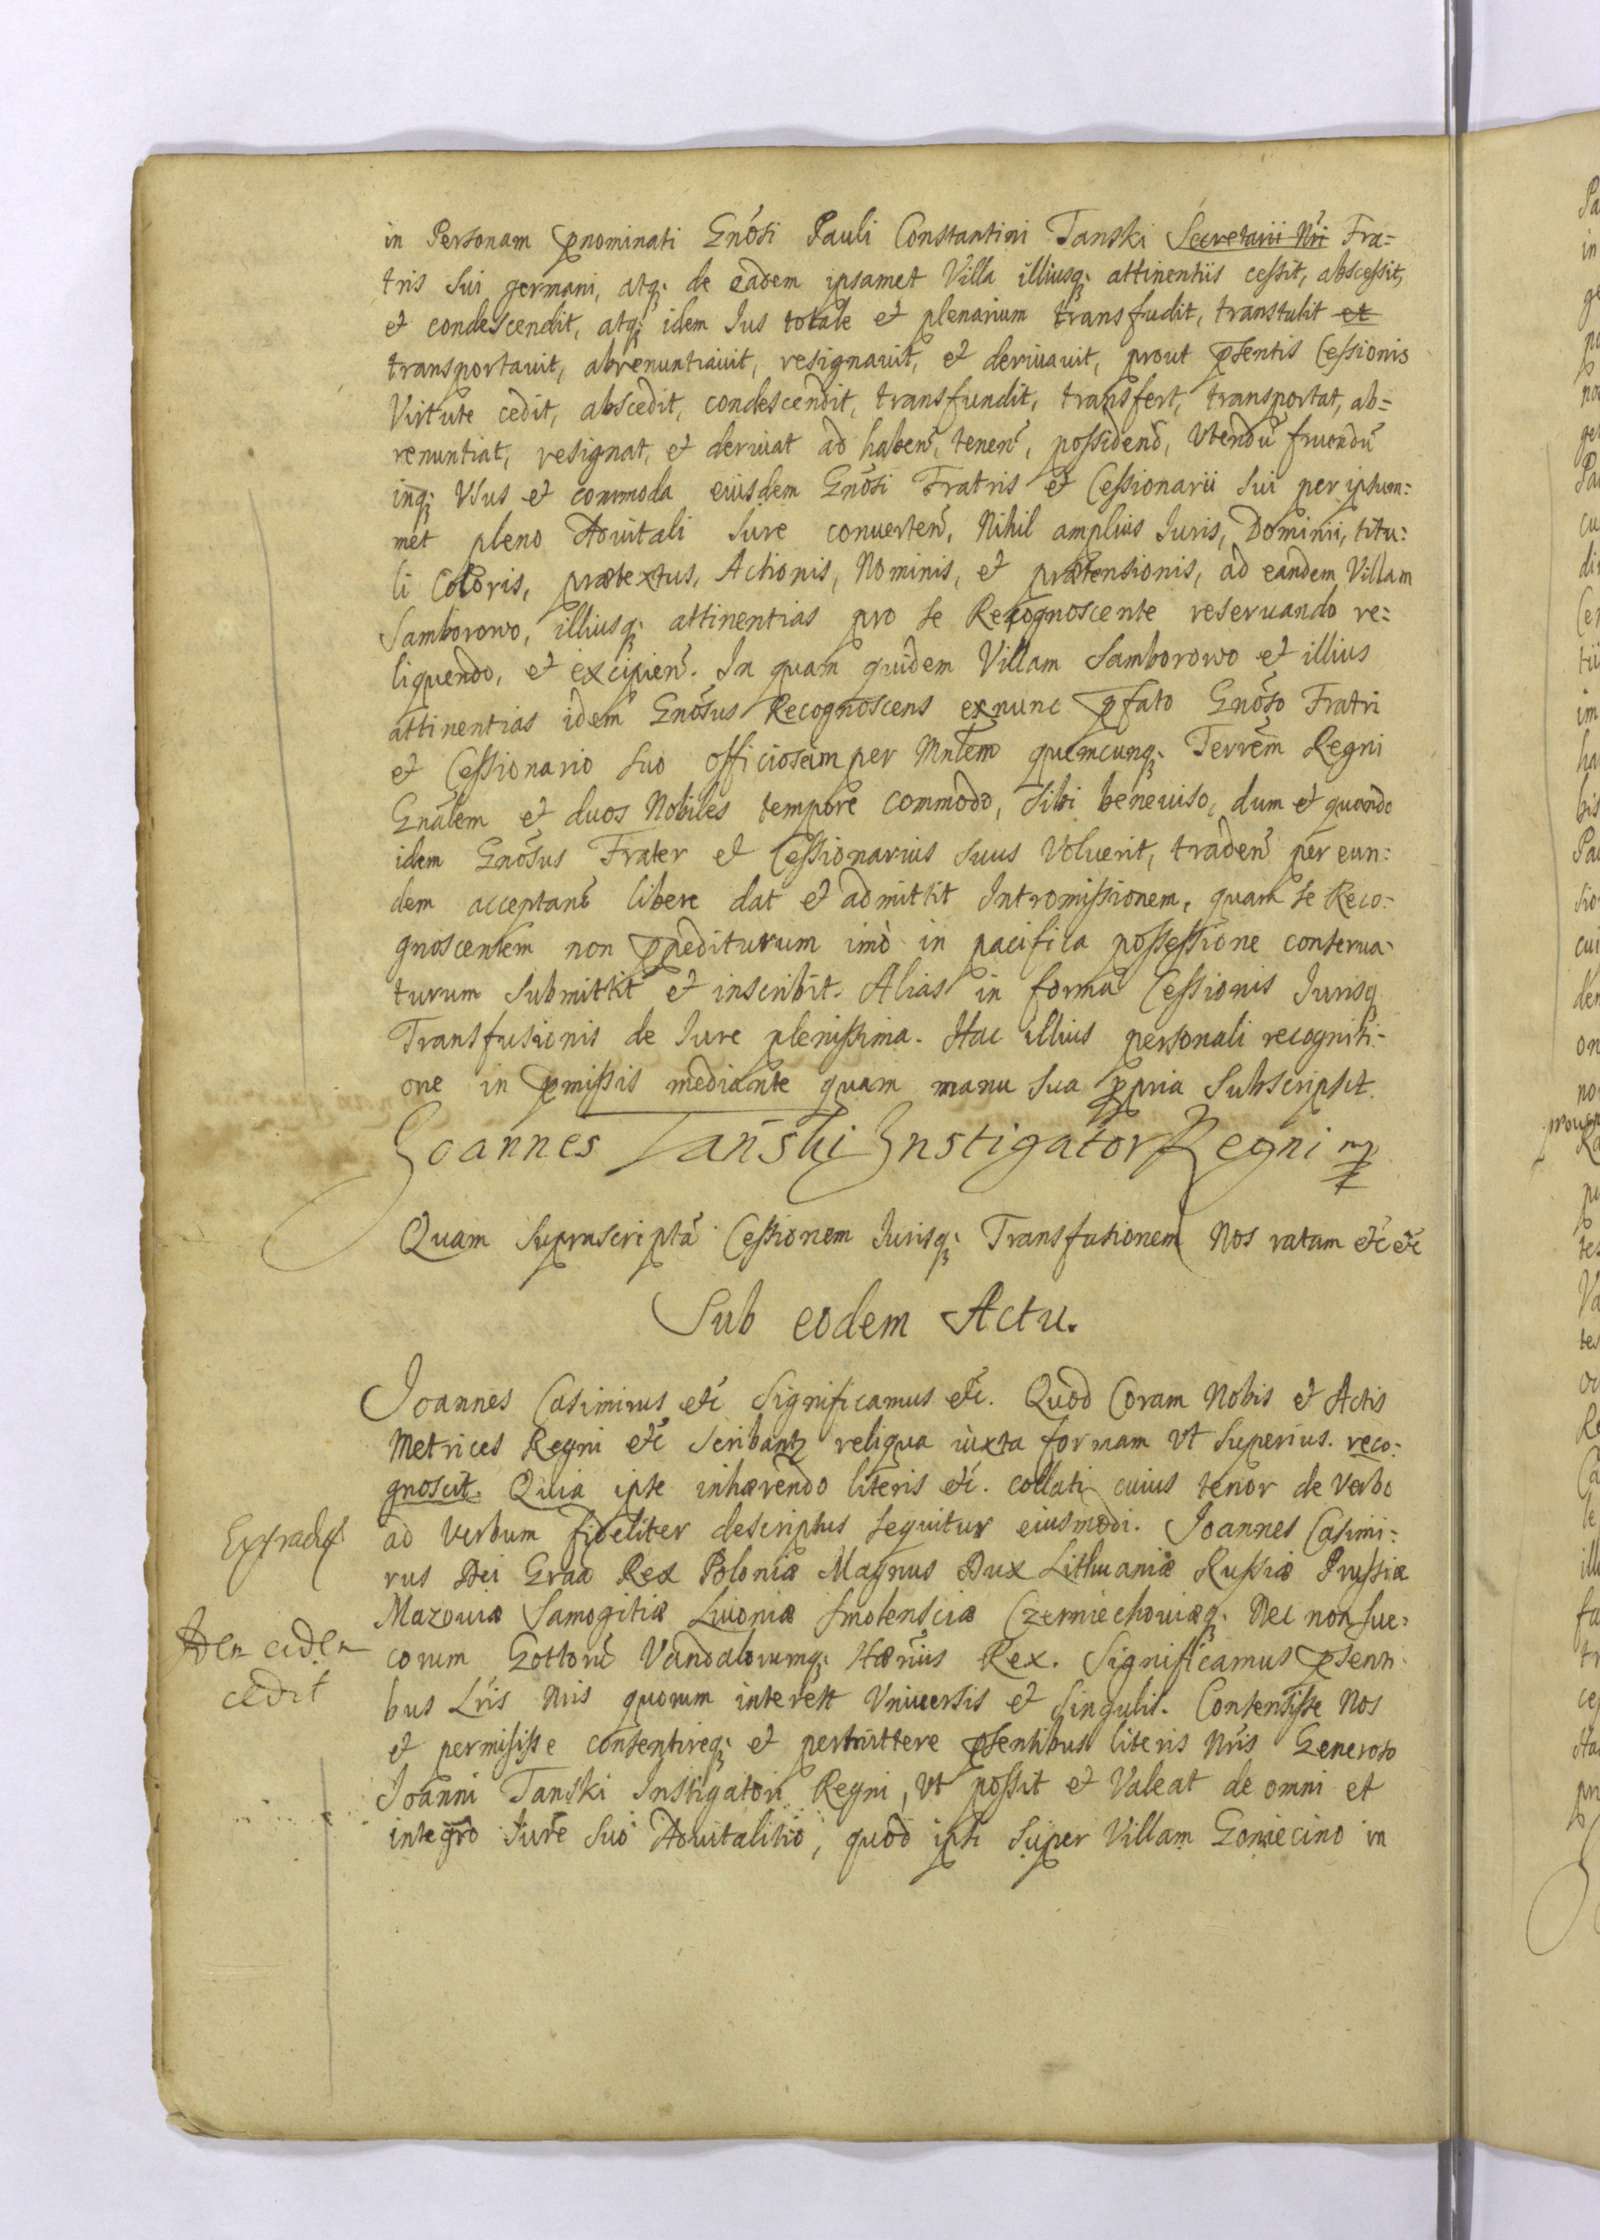 in Personam pnominati Gnosi Pauli Constantini Tanski Secretarii Nri Fra=
tris Sui germani, atq; de eadem ipsamet Villa illiusq; attinentiis cessit, abscessit,
et condescendit, atq; idem Ius totale et plenarium transfudit, transtulit et
transportauit, abrenuntiauit, resignauit, et deriuauit, prout psentis Cessionis
Virtute cedit, abscedit, condescendit, transfundit, transfert, transportat, ab=
renuntiat, resignat, et deriuat ad haben, tenen, possidend, Vtendu fruendu
inq; Vsus et commoda eiusdem Gnosi Fratris et Cessionarii Sui per ipsum=
met pleno Aduitali Iure conuerten, Nihil amplius Iuris, Dominii, titu=
li Coloris, prætextus, Actionis, Nominis, et prætensionis, ad eandem Villam
Samborowo, illiusq; attinentias pro se Recognoscente reseruando re=
liquendo, et excipien. In quam quidem Villam Samborowo et illius
attinentias idem Gnosus Recognoscens exnunc pfato Gnoso Fratri
et Cessionario suo officiosam per Mnlem quemcunq; Terrem Regni
Gnalem et duos Nobiles tempore commodo, sibi beneuiso, dum et quando
idem Gnosus Frater et Cessionarius suus Voluerit, traden per eun=
dem acceptand libere dat et admittit Intromissionem, quam se Reco=
gnoscentem non ppediturum imò in pacifica possessione conserua=
turum submittit et inscribit. Alias in forma Cessionis Iurisq
Transfusionis de Iure plenissima. Hac illius personali recogniti=
one in pmissis mediante quam manu sua ppria subscripsit.
Joannes Tański Instigator Regni mp
Quam suprascriptã Cessionem Iurisq; Transfusionem Nos ratam etc etc
Sub eodem Actu.
Joannes Casimirus etc Significamus etc. Quod Coram Nobis et Actis
Metrices Regni etc scribantz reliqua iuxta formam Vt Superius. reco=
gnoscit. Quia ipse inhærendo literis etc. collati cuius tenor de Verbo
Extradit
ad Verbum fideliter descriptus sequitur eiusmodi. Joannes Casimi=
rus Dei Graa Rex Poloniæ Magnus Dux Lithuaniæ Russiæ Prussiæ
Mazouiæ Samogitiæ Liuoniæ Smolensciæ Czerniechouiæq; Nec non Sue=
cedit
corum Gottoru Vandalorumq; Hærius Rex. Significamus psenti
bus Lris Nris quorum interest Vniuersis et singulis. Consensisse Nos
et permisisse consentireq; et permittere psentibus literis Nris Generoso
Joanni Tański Instigatori Regni, Vt possit et Valeat de omni et
integro Iure suo Aduitalitio, quod ipsi super Villam Goniecino in